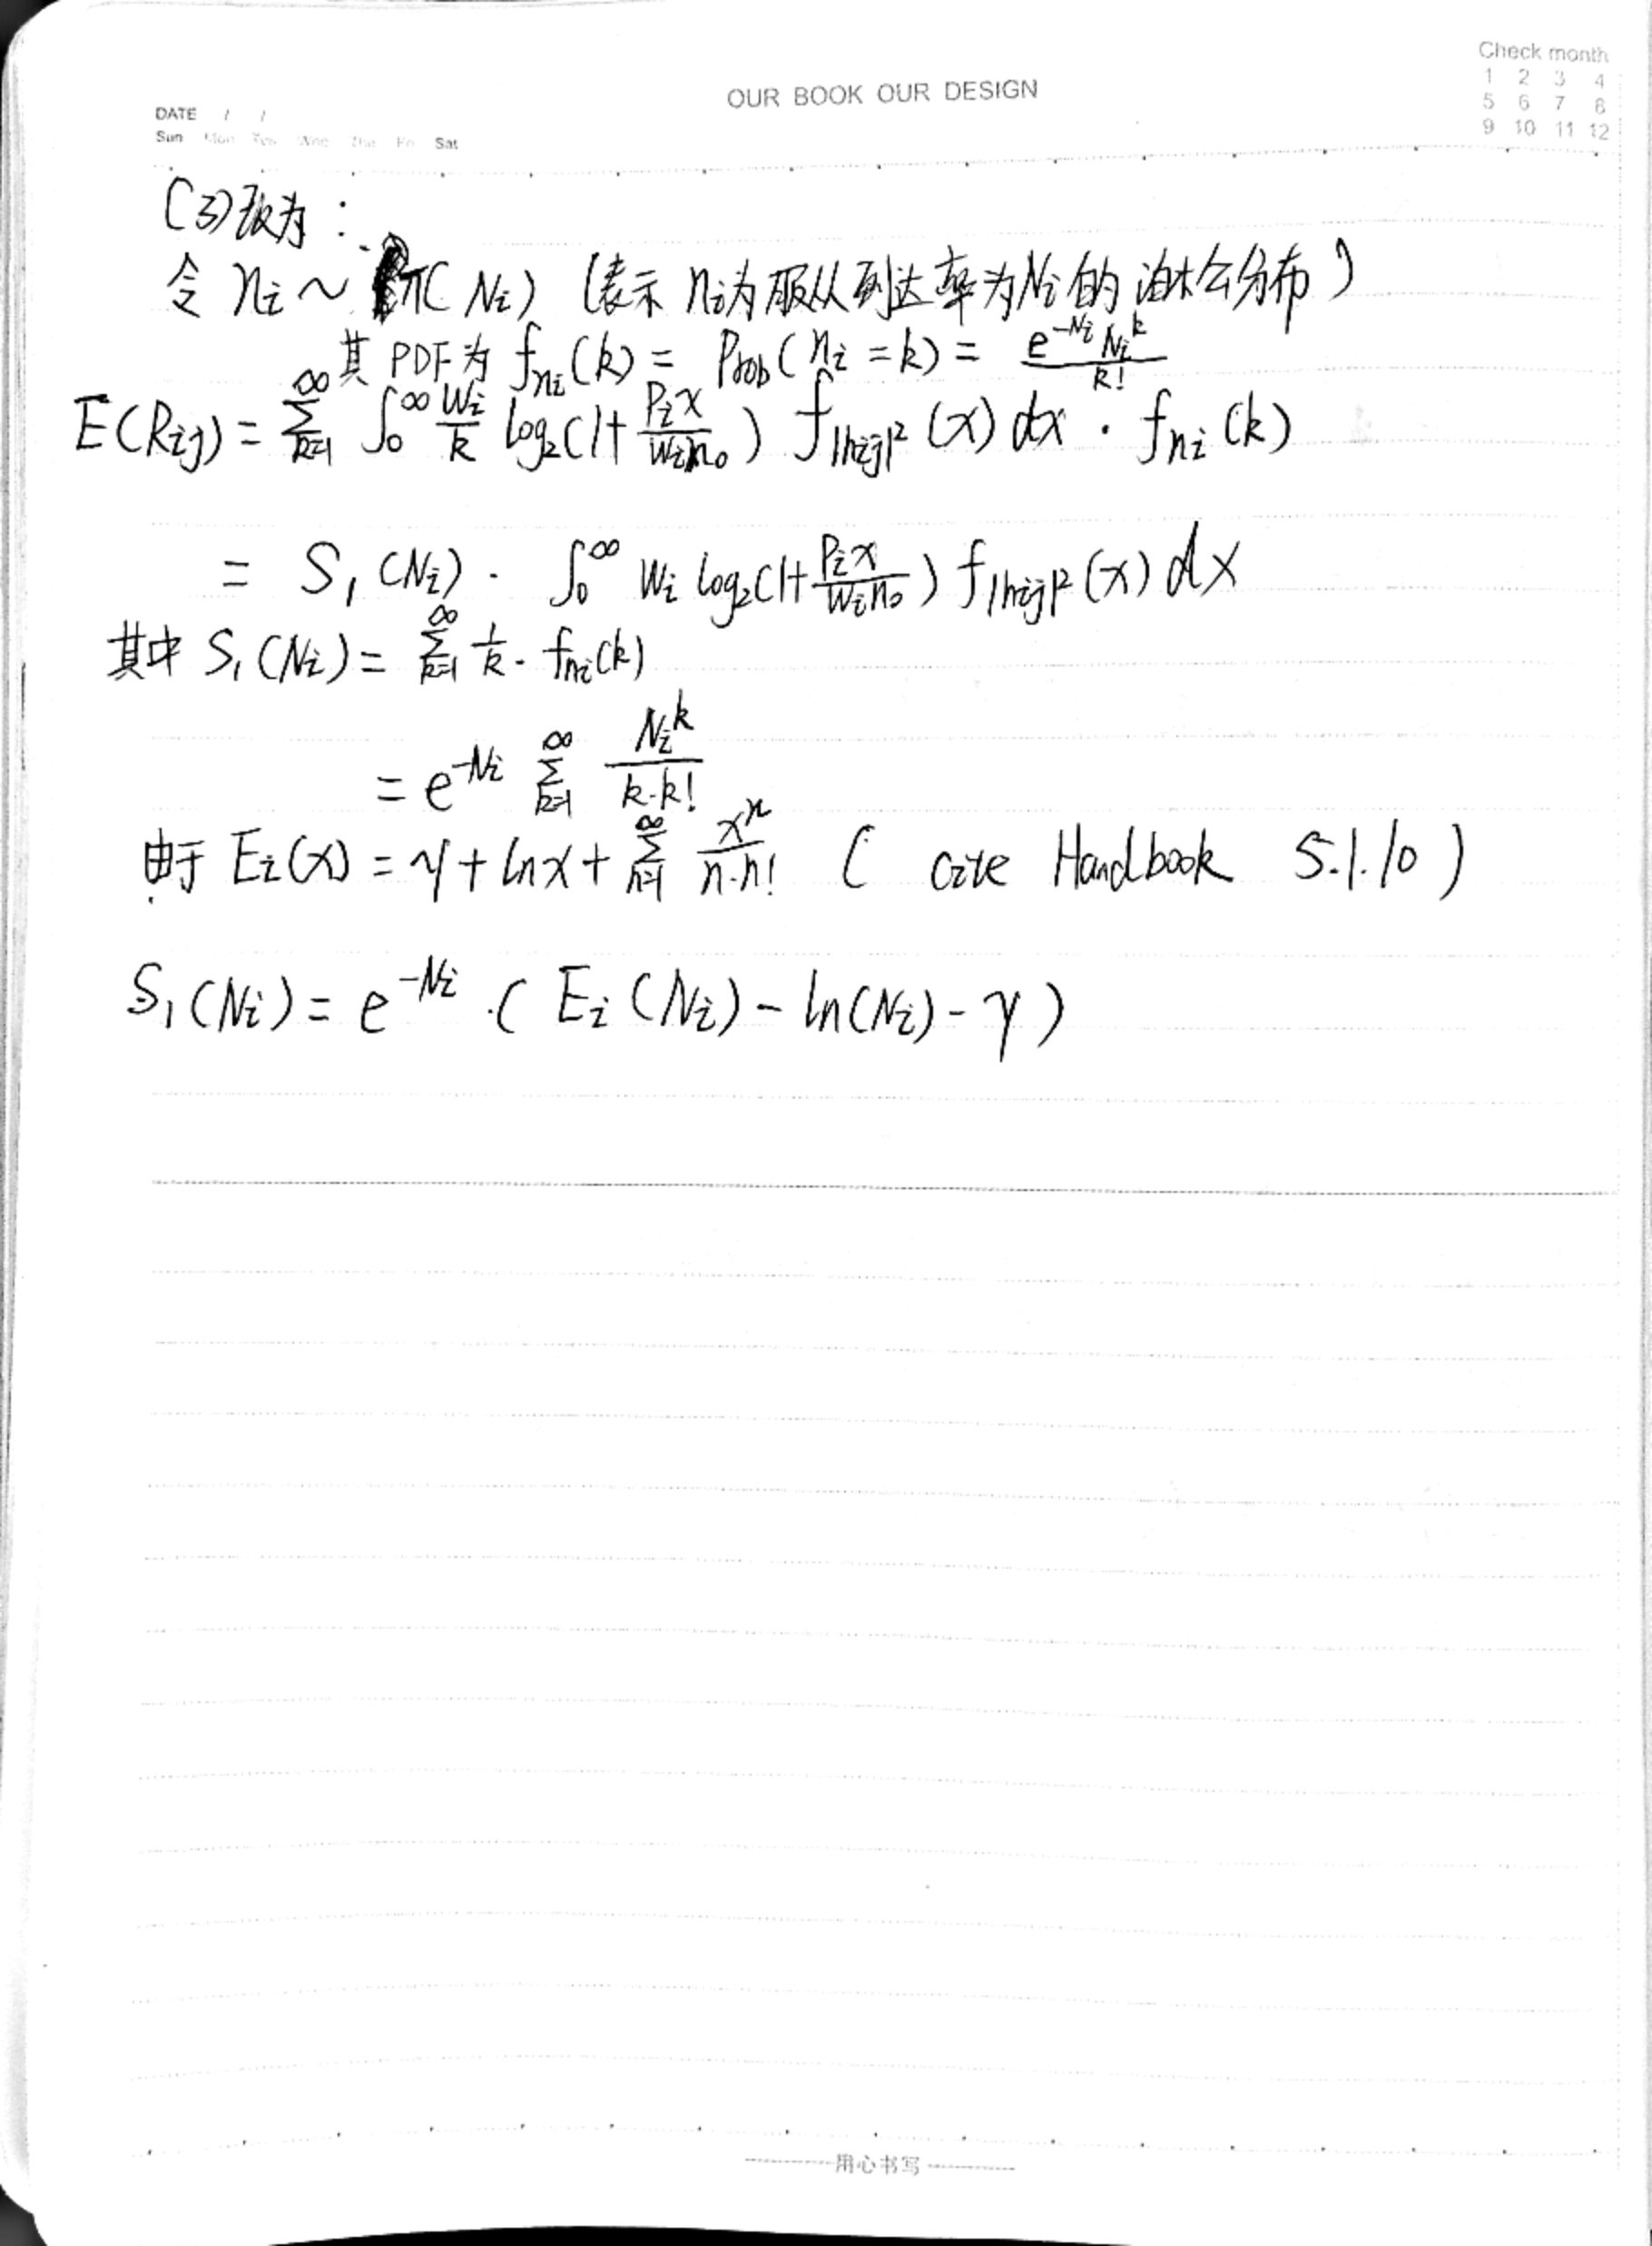 Check month
OUR BOOK OUR DESIGN
1 2 3 4
DATE / /
5 6 7 8
Sun Mon Tes Wne Thu Fri Sat
9 10 11 12
(3)改为：
令 n_i ~ π(N_i) (表示 n_i为服从到达率为N_i的泊松分布)
其 PDF为 f_{n_i}(k) = Prob(n_i = k) = \frac{e^{-N_i} N_i^k}{k!}
E(R_{ij}) = \sum_{k=1}^{∞} \int_0^{∞} \frac{W_i}{k} log_2(1+\frac{P_i x}{W_i n_0}) f_{|h_{ij}|^2}(x) dx · f_{n_i}(k)
= S_1(N_i) · \int_0^{∞} W_i log_2(1+\frac{P_i x}{W_i n_0}) f_{|h_{ij}|^2}(x) dx
其中 S_1(N_i) = \sum_{k=1}^{∞} \frac{1}{k} · f_{n_i}(k)
= e^{-N_i} \sum_{k=1}^{∞} \frac{N_i^k}{k·k!}
由于 E_i(x) = γ + ln x + \sum_{n=1}^{∞} \frac{x^n}{n·n!} ( cite Handbook 5.1.10 )
S_1(N_i) = e^{-N_i} · ( E_i(N_i) - ln(N_i) - γ )
用心书写